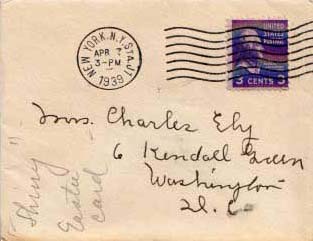 NEW YORK, N.Y. STA. J1
APR 7
3-PM
1939
UNITED
STATES
POSTAGE
3 CENTS 3
Mrs. Charles Ely
6 Kendall Green
Washington
D. C.
"Shiny"
Easter
card